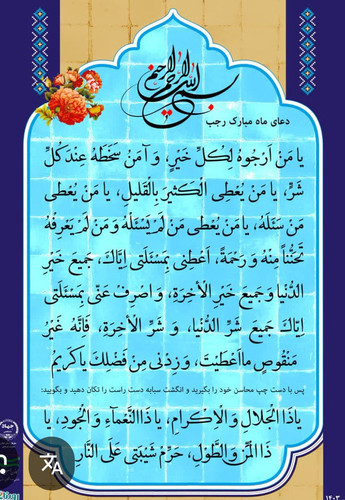 بسم الله الرحمن الرحیم
دعای ماه مبارک رجب
یا مَنْ اَرْجُوهُ لِکُلِّ خَیْرٍ، وَ آمَنُ سَخَطَهُ عِنْدَ کُلِّ
شَرٍّ، یا مَنْ یُعْطِی الْکَثیرَ بِالْقَلیلِ، یا مَنْ یُعْطی
مَنْ سَئَلَهُ، یا مَنْ یُعْطی مَنْ لَمْ یَسْئَلْهُ وَ مَنْ لَمْ یَعْرِفْهُ
تَحَنُّناً مِنْهُ وَ رَحْمَةً، اَعْطِنی بِمَسْئَلَتی اِیَّاکَ، جَمیعَ خَیْرِ
الدُّنْیا وَ جَمیعَ خَیْرِ الْأخِرَةِ، وَ اصْرِفْ عَنّی بِمَسْئَلَتی
اِیَّاکَ جَمیعَ شَرِّ الدُّنْیا، وَ شَرِّ الْأخِرَةِ، فَاِنَّهُ غَیْرُ
مَنْقُوصٍ ما اَعْطَیْتَ، وَ زِدْنی مِنْ فَضْلِکَ یا کَریمُ
پس با دست چپ محاسن خود را بگیرید و انگشت سبابه دست راست را تکان دهید و بگویید:
یا ذَا الْجَلالِ وَ الْاِکْرامِ، یا ذَا النَّعْماءِ وَ الْجُودِ، یا
ذَا الْمَنِّ وَ الطَّوْلِ، حَرِّمْ شَیْبَتی عَلَی النَّارِ
جهاد
۱۴۰۳